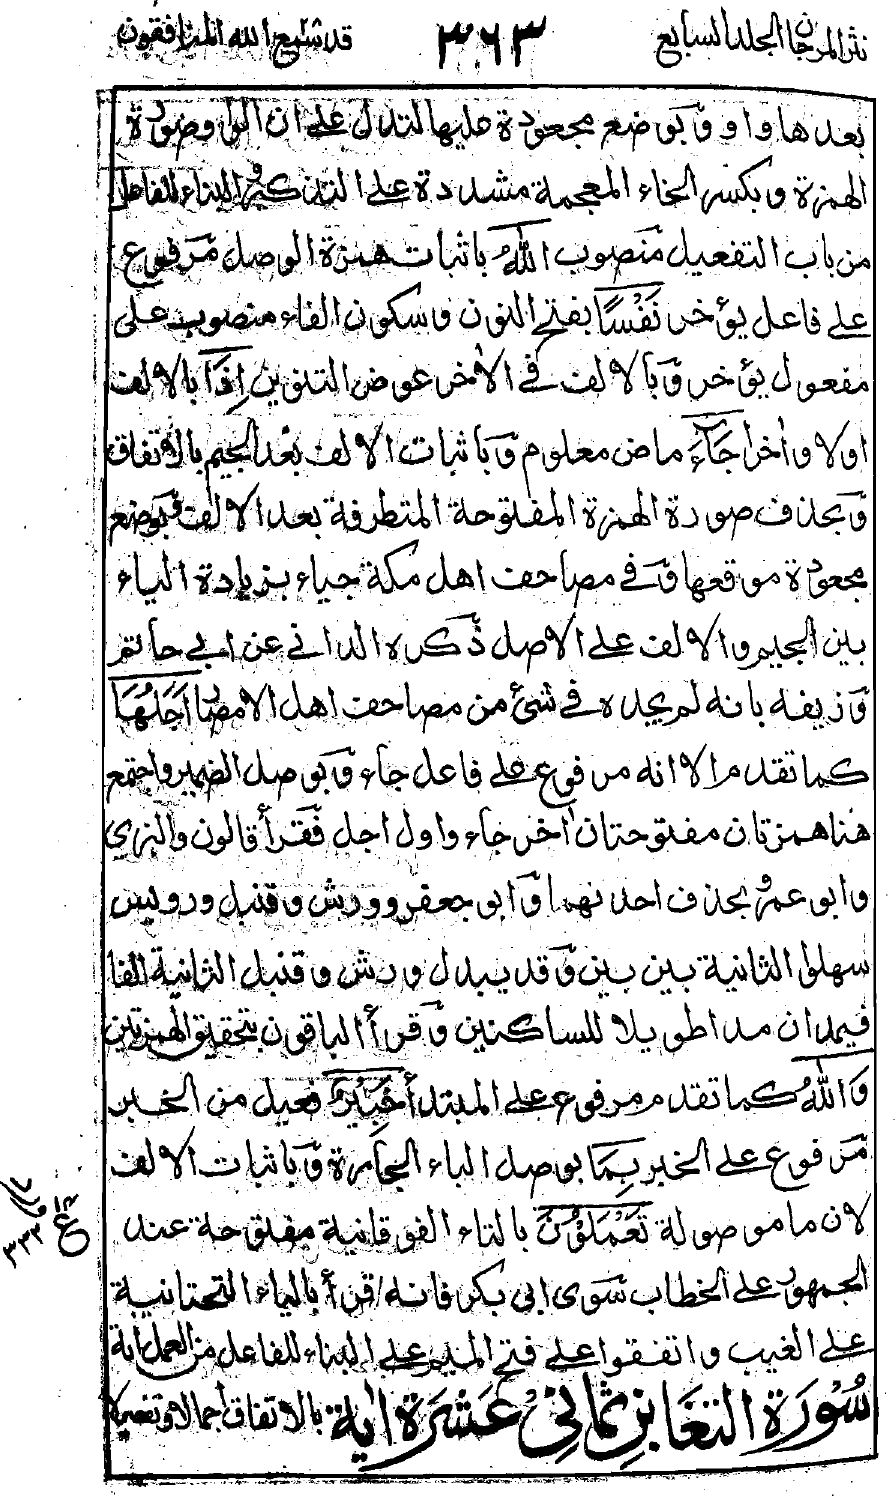 نثر المرجان المجلد السابع ٣٦٣ قد سمع الله المنافقون
بعدها واو وبوضع مجعودة عليها لتدل على ان الواو صورة
الهمزة وبكسر الخاء المعجمة مشددة على التذكير والبناء للفاعل
من باب التفعيل منصوب اللهُ باثبات همزة الوصل مرفوع
على فاعل يؤخر نَفْسًا بفتح النون وسكون الفاء منصوب على
مفعول يؤخر وبالالف في الاخر عوض التنوين اِذَا بالالف
اولا واخرا جَآءَ ماض معلوم وباثبات الالف بعد الجيم بالاتفاق
وبحذف صورة الهمزة المفتوحة المتطرفة بعد الالف وبوضع
مجعودة موقعها وفي مصاحف اهل مكة جياء بزيادة الياء
بين الجيم والالف على الاصل ذكره الداني عن ابي حاتم
وزيفه بانه لم يجده في شئ من مصاحف اهل الامصار اَجَلُهَا
كما تقدم الا انه مرفوع على فاعل جاء وبوصل الضمير واجتمع
هنا همزتان مفتوحتان اخر جاء واول اجل فقرأ قالون والبزي
وابو عمرو بحذف احدىهما وابو جعفر وورش وقنبل ورويس
سهلوا الثانية بين بين وقد يبدل ورش وقنبل الثانية الفا
فيمدان مدا طويلا للساكنين وقرأ الباقون بتحقيق الهمزتين
وَاللهُ كما تقدم مرفوع على المبتدأ خَبِيْرٌ فعيل من الخبر
مرفوع على الخبر بِمَا بوصل الباء الجارة وباثبات الالف
لان ما موصولة تَعْمَلُوْنَ بالتاء الفوقانية مفتوحة عند
الجمهور على الخطاب سوى ابي بكر فانه قرأ بالياء التحتانية
على الغيب واتفقوا على فتح الميم على البناء للفاعل من العمل اية
سُوْرَة التغَابنِ ثمانيْ عَشرَة اٰية بالاتفاق اجمالا وتفصيلا
ع
٣٣٣